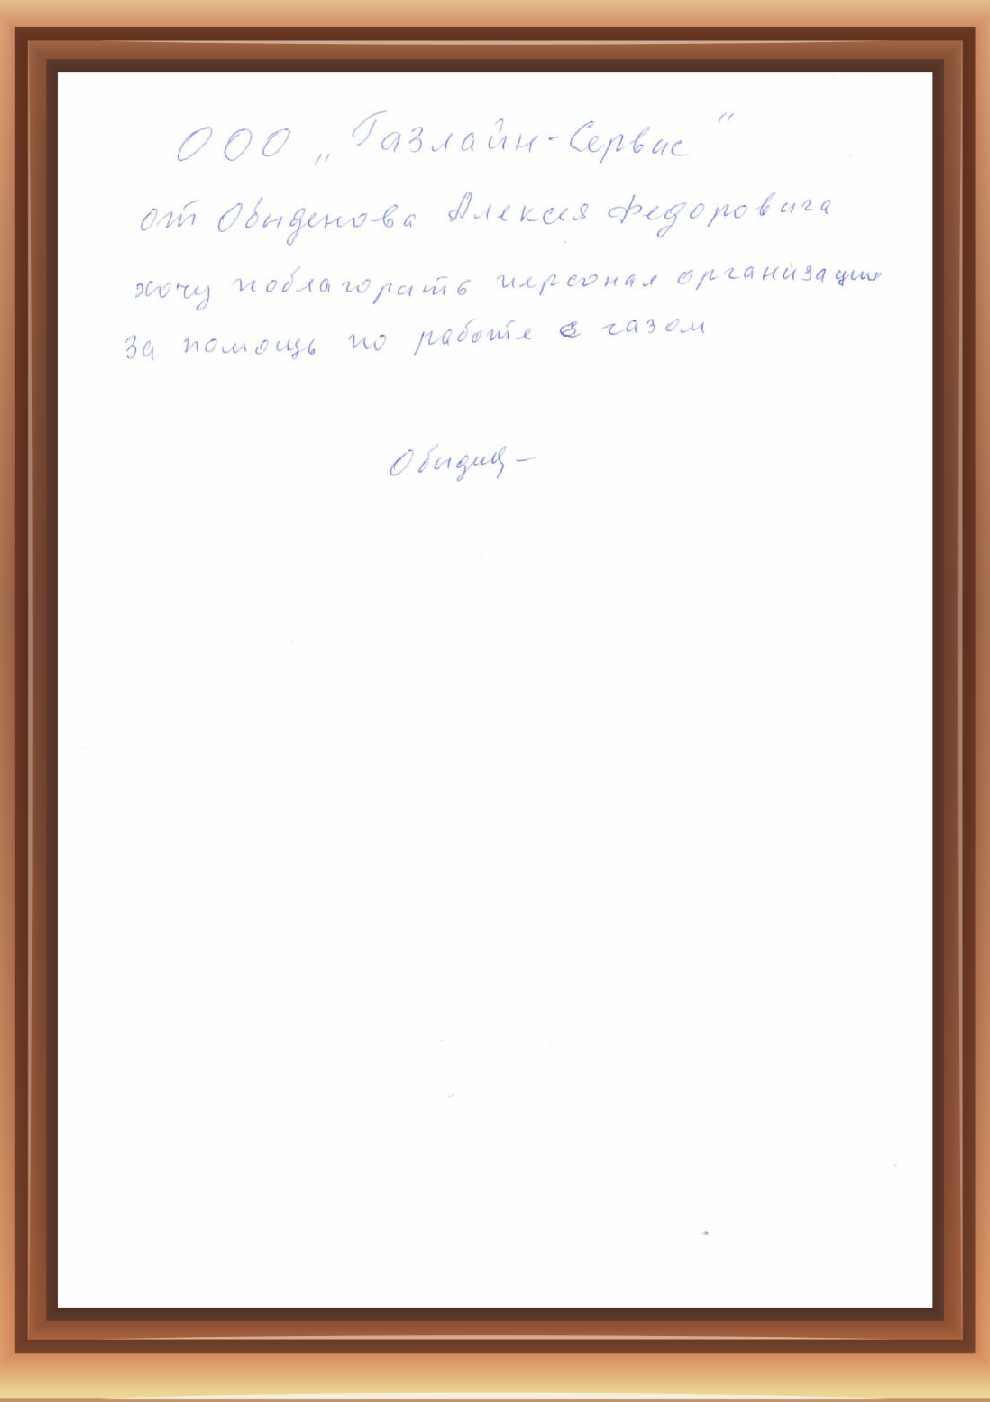 ООО „Газлайн-Сервис"
от Обыденова Алексея Федоровича
хочу поблагорить персонал организации
за помощь по работе с газом